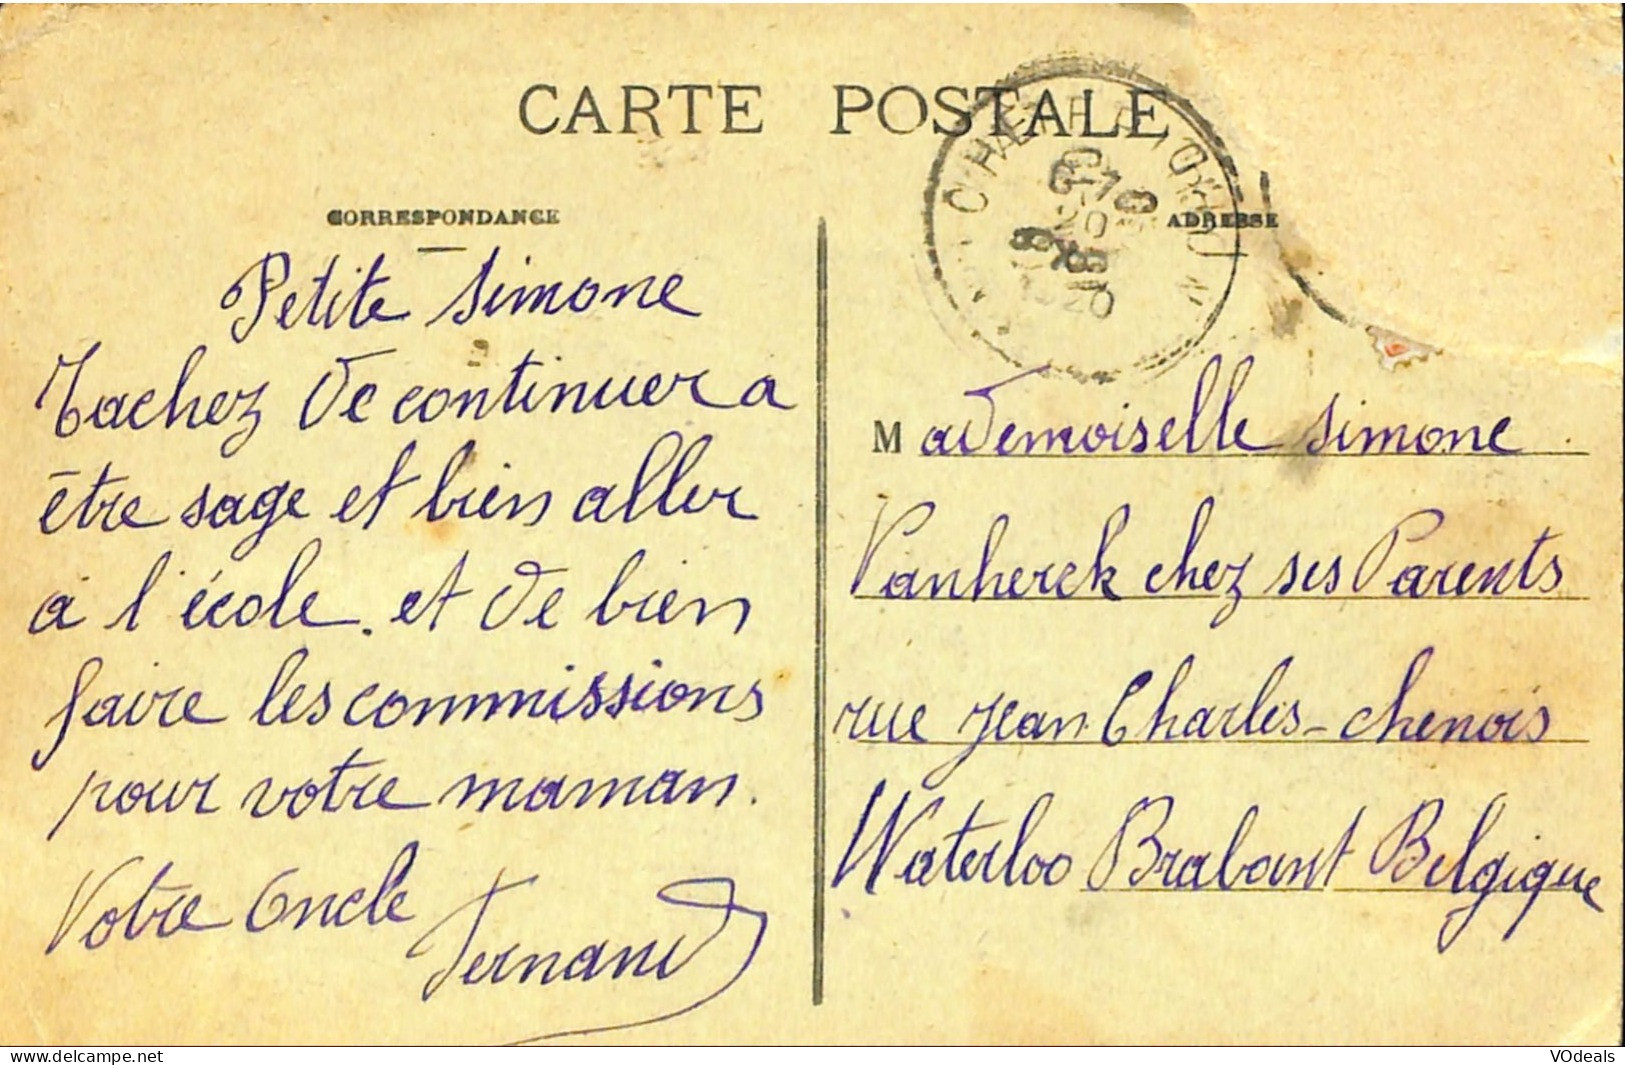 CARTE POSTALE
CORRESPONDANCE
ADRESSE
Petite Simone
Tachez de continuer a
être sage et bien aller
à l'école. et de bien
faire les commissions
pour votre maman.
Votre Oncle
Fernand
Mademoiselle Simone
Vanherck chez ses Parents
rue Jean Charles-Chenois
Waterloo Brabant Belgique
www.delcampe.net
VOdeals